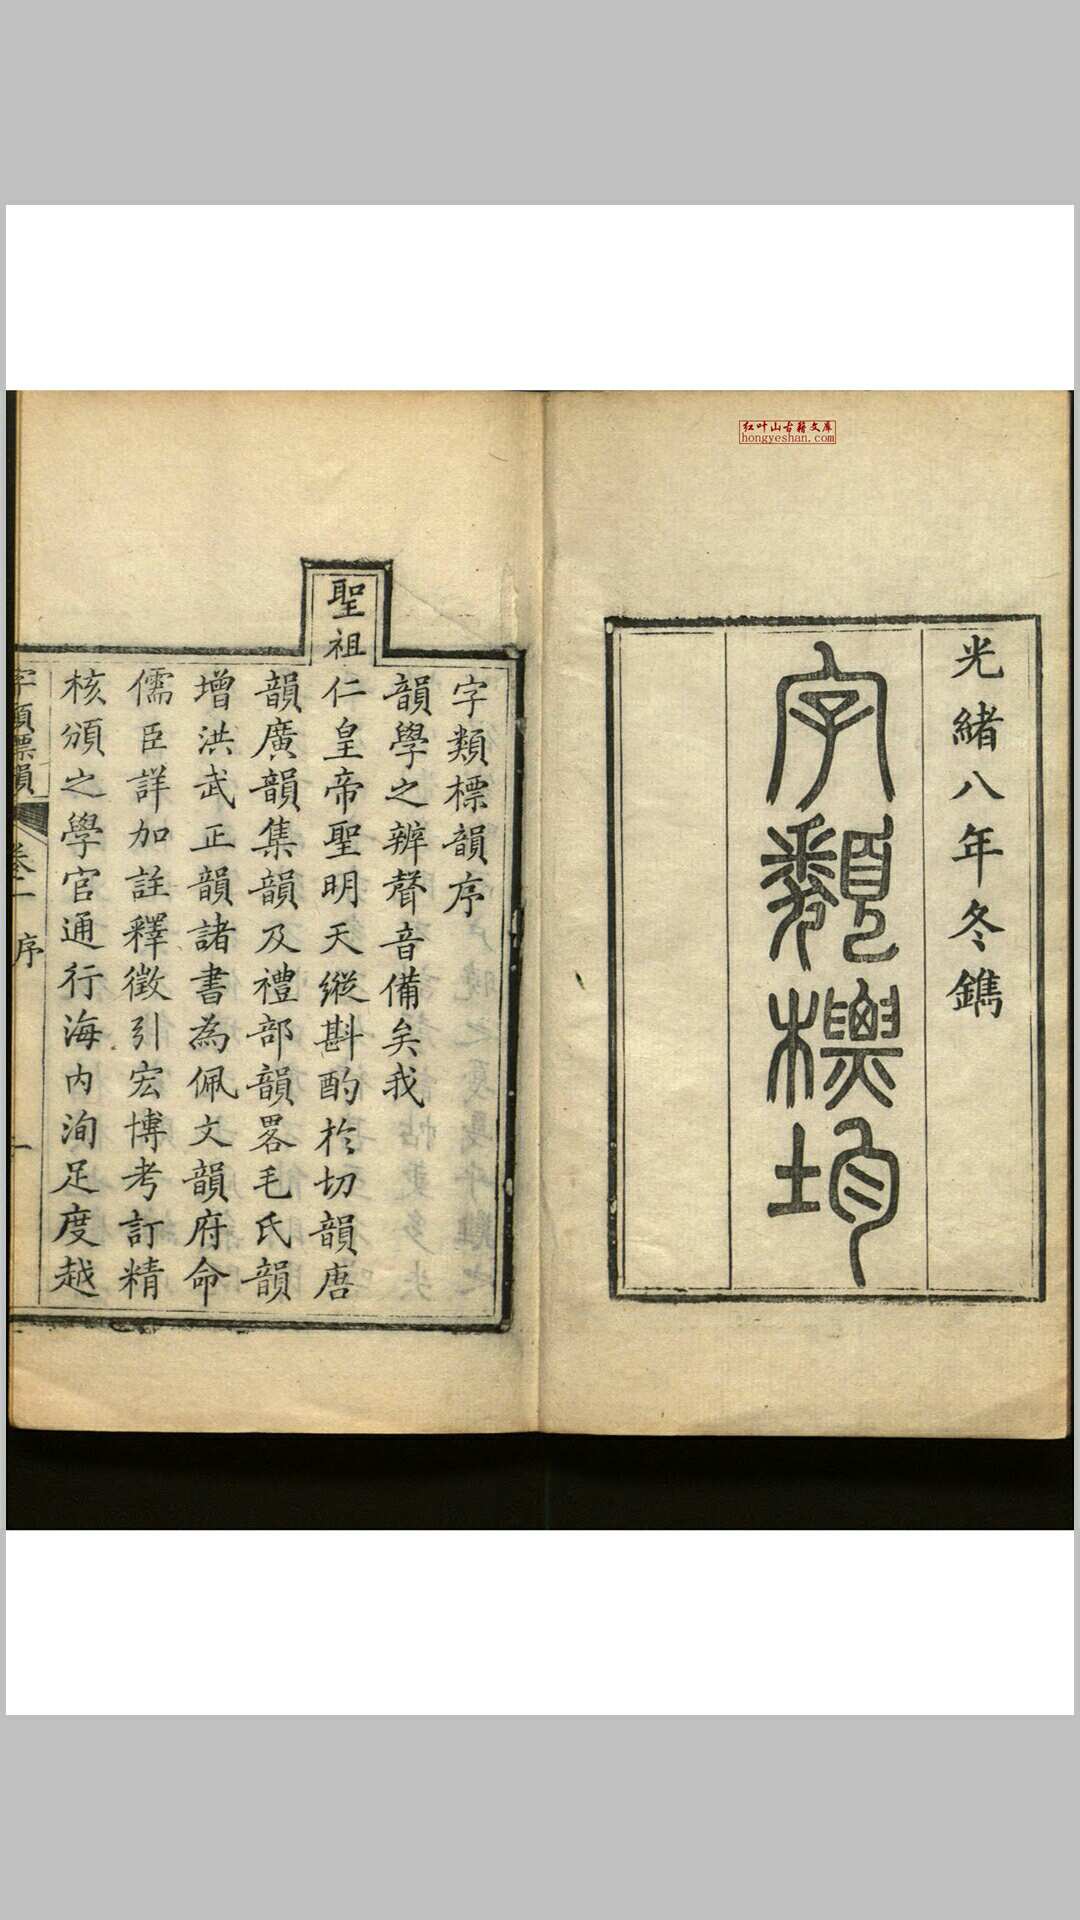 红叶山古籍文库
hongyeshan.com
光緒八年冬鐫
字類標均
字類標韻序
韻學之辨聲音備矣我
聖祖
仁皇帝聖明天縱斟酌於切韻唐
韻廣韻集韻及禮部韻畧毛氏韻
增洪武正韻諸書為佩文韻府命
儒臣詳加註釋徵引宏博考訂精
核頒之學官通行海內洵足度越
字類標韻 序 一